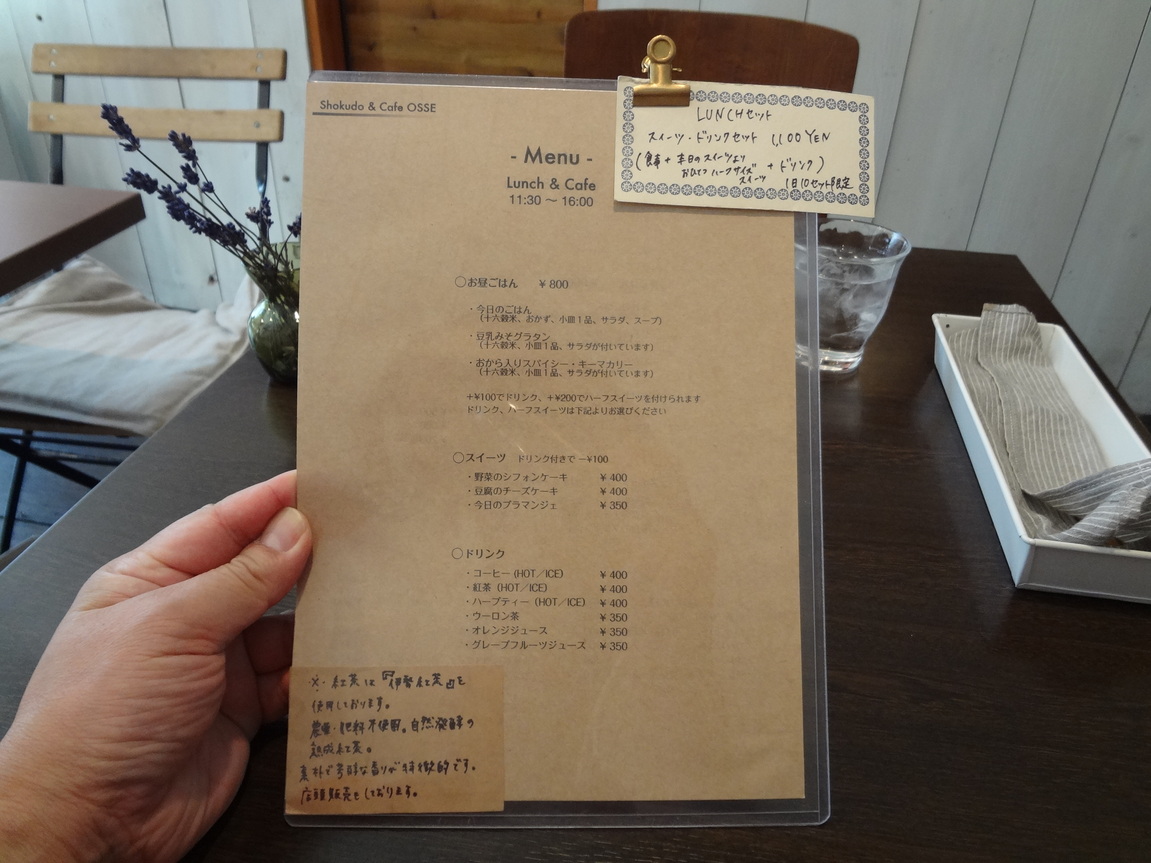 Shokudo & Cafe OSSE
LUNCHセット
スイーツ・ドリンクセット 1,100 YEN
(食事 + 本日のスイーツより + ドリンク)
おひとつハーフサイズスイーツ
1日10セット限定
- Menu -
Lunch & Cafe
11:30 〜 16:00
○お昼ごはん ¥800
・今日のごはん
(十六穀米、おかず、小皿1品、サラダ、スープ)
・豆乳みそグラタン
(十六穀米、小皿1品、サラダが付いています)
・おから入りスパイシー・キーマカリー
(十六穀米、小皿1品、サラダが付いています)
+¥100でドリンク、+¥200でハーフスイーツを付けられます
ドリンク、ハーフスイーツは下記よりお選びください
○スイーツ ドリンク付きで −¥100
・野菜のシフォンケーキ ¥400
・豆腐のチーズケーキ ¥400
・今日のブラマンジェ ¥350
○ドリンク
・コーヒー (HOT/ICE) ¥400
・紅茶 (HOT/ICE) ¥400
・ハーブティー (HOT/ICE) ¥400
・ウーロン茶 ¥350
・オレンジジュース ¥350
・グレープフルーツジュース ¥350
※・紅茶は『伊勢紅茶』を
使用しております。
農薬・肥料不使用。自然発酵の
熟成紅茶。
素朴で芳醇な香りが特徴的です。
店頭販売もしております。